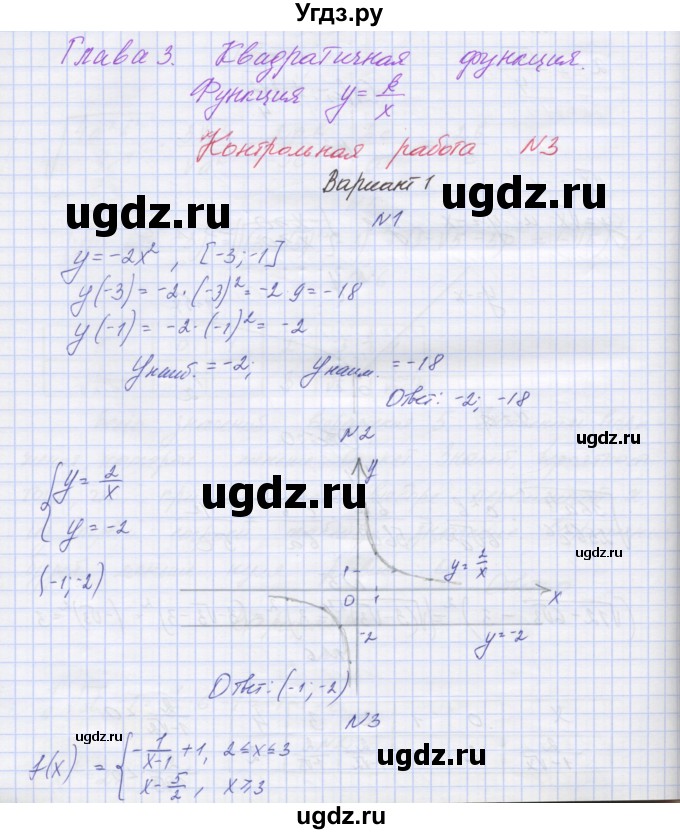 Угдз.ру
Глава 3. Квадратичная функция.
Функция y = k/x
Контрольная работа N3
Вариант 1
ugdz.ru
ugdz.ru
N1
y = -2x², [-3; -1]
y(-3) = -2·(-3)² = -2·9 = -18
y(-1) = -2·(-1)² = -2
yнаиб. = -2; yнаим. = -18
Ответ: -2; -18
N2
ugdz.ru
{ y = 2/x
y = -2
ugdz.ru
(-1; -2)
y
1
y = 2/x
ugdz.ru
0 1 x
-2 y = -2
Ответ: (-1; -2)
N3
ugdz.ru
ugdz.ru
f(x) = { -1/(x-1) + 1, 2 ≤ x ≤ 3
x - 5/2, x ≥ 3